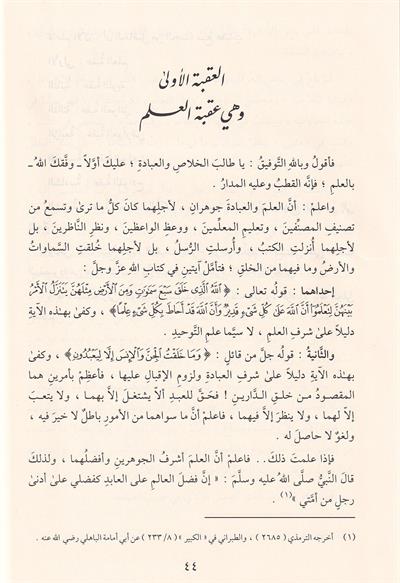 العقبة الأولىٰ
وهي عقبة العلم
فأقولُ وباللهِ التَّوفيقُ : يا طالبَ الخلاصِ والعبادةِ ؛ عليكَ أوَّلاً ـ وفَّقكَ اللهُ ـ
بالعلمِ ؛ فإنَّه القطبُ وعليه المدارُ .
واعلمْ : أنَّ العلمَ والعبادةَ جوهرانِ ، لأجلِهما كانَ كلُّ ما ترىٰ وتسمعُ من
تصنيفِ المصنِّفينَ ، وتعليمِ المعلِّمينَ ، ووعظِ الواعظينَ ، ونظرِ النَّاظرينَ ، بل
لأجلِهما أُنزلتِ الكتبُ ، وأُرسلتِ الرُّسلُ ، بل لأجلِهما خُلقتِ السَّماواتُ
والأرضُ وما فيهما من الخلقِ ؛ فتأمَّلْ آيتينِ في كتابِ اللهِ عزَّ وجلَّ :
إحداهما : قولُه تعالىٰ : ﴿ ٱللَّهُ ٱلَّذِى خَلَقَ سَبْعَ سَمَٰوَٰتٍ وَمِنَ ٱلْأَرْضِ مِثْلَهُنَّ يَتَنَزَّلُ ٱلْأَمْرُ
بَيْنَهُنَّ لِتَعْلَمُوٓا۟ أَنَّ ٱللَّهَ عَلَىٰ كُلِّ شَىْءٍ قَدِيرٌ وَأَنَّ ٱللَّهَ قَدْ أَحَاطَ بِكُلِّ شَىْءٍ عِلْمًۢا ﴾ ، وكفىٰ بهـٰذه الآيةِ
دليلاً علىٰ شرفِ العلمِ ، لا سيَّما علمِ التَّوحيدِ .
والثَّانيةُ : قولُه جلَّ من قائلٍ : ﴿ وَمَا خَلَقْتُ ٱلْجِنَّ وَٱلْإِنسَ إِلَّا لِيَعْبُدُونِ ﴾ ، وكفىٰ
بهـٰذه الآيةِ دليلاً علىٰ شرفِ العبادةِ ولزومِ الإقبالِ عليها ، فأعظِمْ بأمرينِ هما
المقصودُ من خلقِ الدَّارينِ ! فحقَّ للعبدِ ألاَّ يشتغلَ إلاَّ بهما ، ولا يتعبَ
إلاَّ لهما ، ولا ينظرَ إلاَّ فيهما ، فاعلمْ أنَّ ما سواهما من الأمورِ باطلٌ لا خيرَ فيه ،
ولغوٌ لا حاصلَ له .
فإذا علمتَ ذلكَ . . فاعلمْ أنَّ العلمَ أشرفُ الجوهرينِ وأفضلُهما ، ولذلكَ
قالَ النَّبيُّ صلَّى اللهُ عليه وسلَّمَ : « إنَّ فضلَ العالمِ على العابدِ كفضلي علىٰ أدنىٰ
رجلٍ من أمَّتي »(١) .
(١) أخرجه الترمذي ( ٢٦٨٥ ) ، والطبراني في « الكبير » ( ٨/ ٢٣٣ ) عن أبي أمامة الباهلي رضي الله عنه .
٤٤